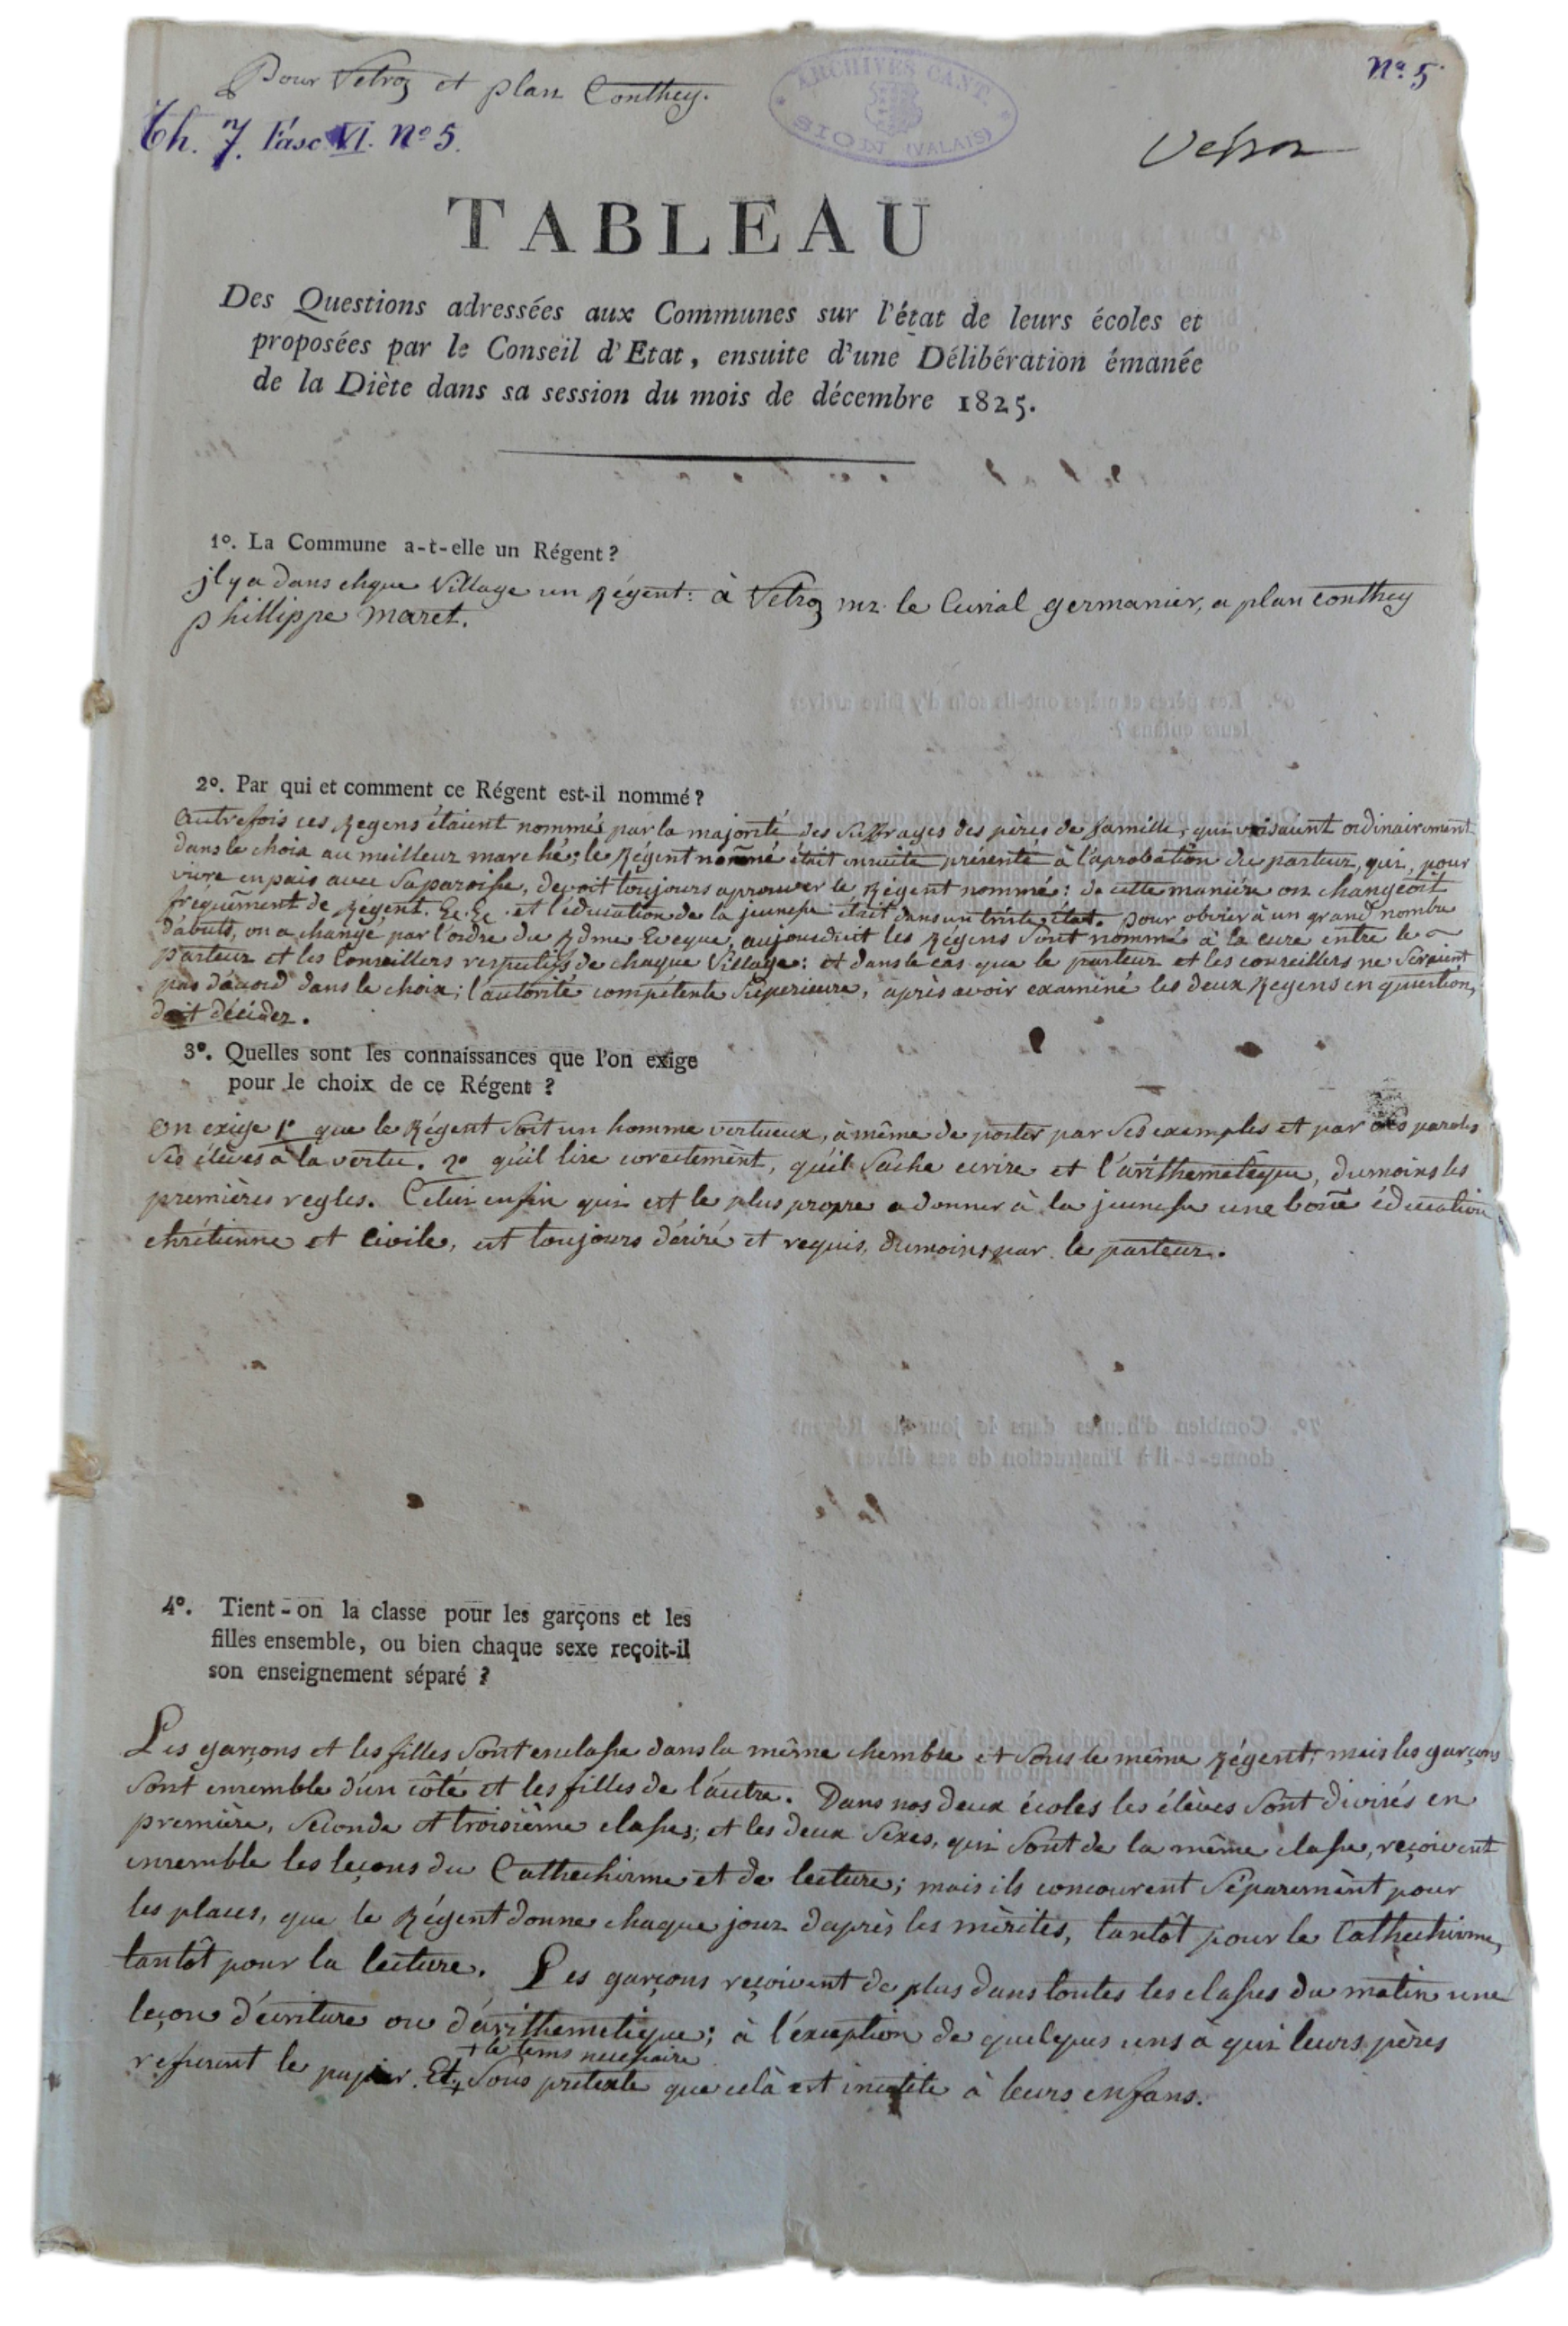 Pour Vetroz et plan Conthey.
Nº 5
Th. 7. Fasc VI. Nº 5.
ARCHIVES CANT. SION (VALAIS)
Vétroz
TABLEAU
Des Questions adressées aux Communes sur l'état de leurs écoles et
proposées par le Conseil d'Etat, ensuite d'une Délibération émanée
de la Diète dans sa session du mois de décembre 1825.
1º. La Commune a-t-elle un Régent?
jl y a dans chque Village un Régent: à Vetroz mr. le Curial germanier, a plan conthey
phillippe maret.
2º. Par qui et comment ce Régent est-il nommé?
Autrefois ces Regens étaient nommés par la majorité des suffrages des pères de famille, qui visaient ordinairement
dans le choix au meilleur marché; le Régent nom̃é était ensuite présenté à l'aprobation du pasteur, qui, pour
vivre en paix avec sa paroisse, devoit toujours aprouver le Régent nommé: de cette manière on changeoit
fréquem̃ent de Régent. &c. &c. et l'éducation de la jeunesse était dans un triste état. pour obvier à un grand nombre
d'abuts, on a changé par l'ordre du Rdme Eveque, aujourdhuit les Régens sont nommé à la cure entre le
pasteur et les Conseillers respectifs de chaque Village: et dans le cas que le pasteur et les conseillers ne seroient
pas d'acord dans le choix; l'autorité compétente superieure, après avoir examiné les deux Regens en question,
doit décider.
3º. Quelles sont les connaissances que l'on exige
pour le choix de ce Régent?
on exige 1º que le Régent soit un homme vertueux, à même de porter par ses exemples et par ses paroles
ses élèves à la vertu. 2º qu'il lise corectement, qu'il sache ecrire et l'arithemetique, dumoins les
premières regles. Celui enfin qui est le plus propre a donner à la jeunesse une bon̄e éducation
chrétienne et civile, est toujours désiré et requis, dumoins par le pasteur.
4º. Tient-on la classe pour les garçons et les
filles ensemble, ou bien chaque sexe reçoit-il
son enseignement séparé?
Les garçons et les filles sont en classe dans la même chembre et sous le même Régent; mais les garçons
sont ensemble d'un côté et les filles de l'autre. Dans nos deux écoles les élèves sont divisés en
première, seconde et troisième classes; et les deux sexes, qui sont de la même classe, reçoivent
ensemble les leçons du Cathechisme et de lecture; mais ils concourent séparemènt pour
les places, que le Régent donne chaque jour d'après les mèrites, tantôt pour le Cathechisme,
tantôt pour la lecture. Les garçons reçoivent de plus dans toutes les classes du matin une
leçon d'écriture ou d'arithemetique; à l'éxception de quelques uns à qui leurs pères
+ le tems necessaire
refusent le papier. Et + sous pretexte que celà est inutile à leurs enfans.